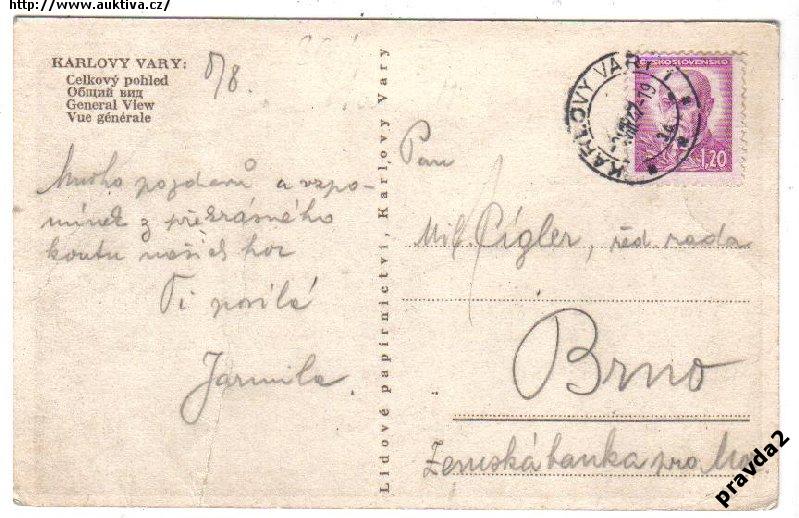 http://www.auktiva.cz/
KARLOVY VARY:
Celkový pohled
Общий вид
General View
Vue générale
5/8.
Mnoho pozdravů a vzpo-
mínek z překrásného
koutu našich hor
Ti posílá
Jarmila.
Lidové papírnictví, Karlovy Vary
KARLOVY VARY 1
ČESKOSLOVENSKO
1,20
Pan
Mil. Pígler, řed rada
Brno
Zemská banka pro Mor.
pravda2